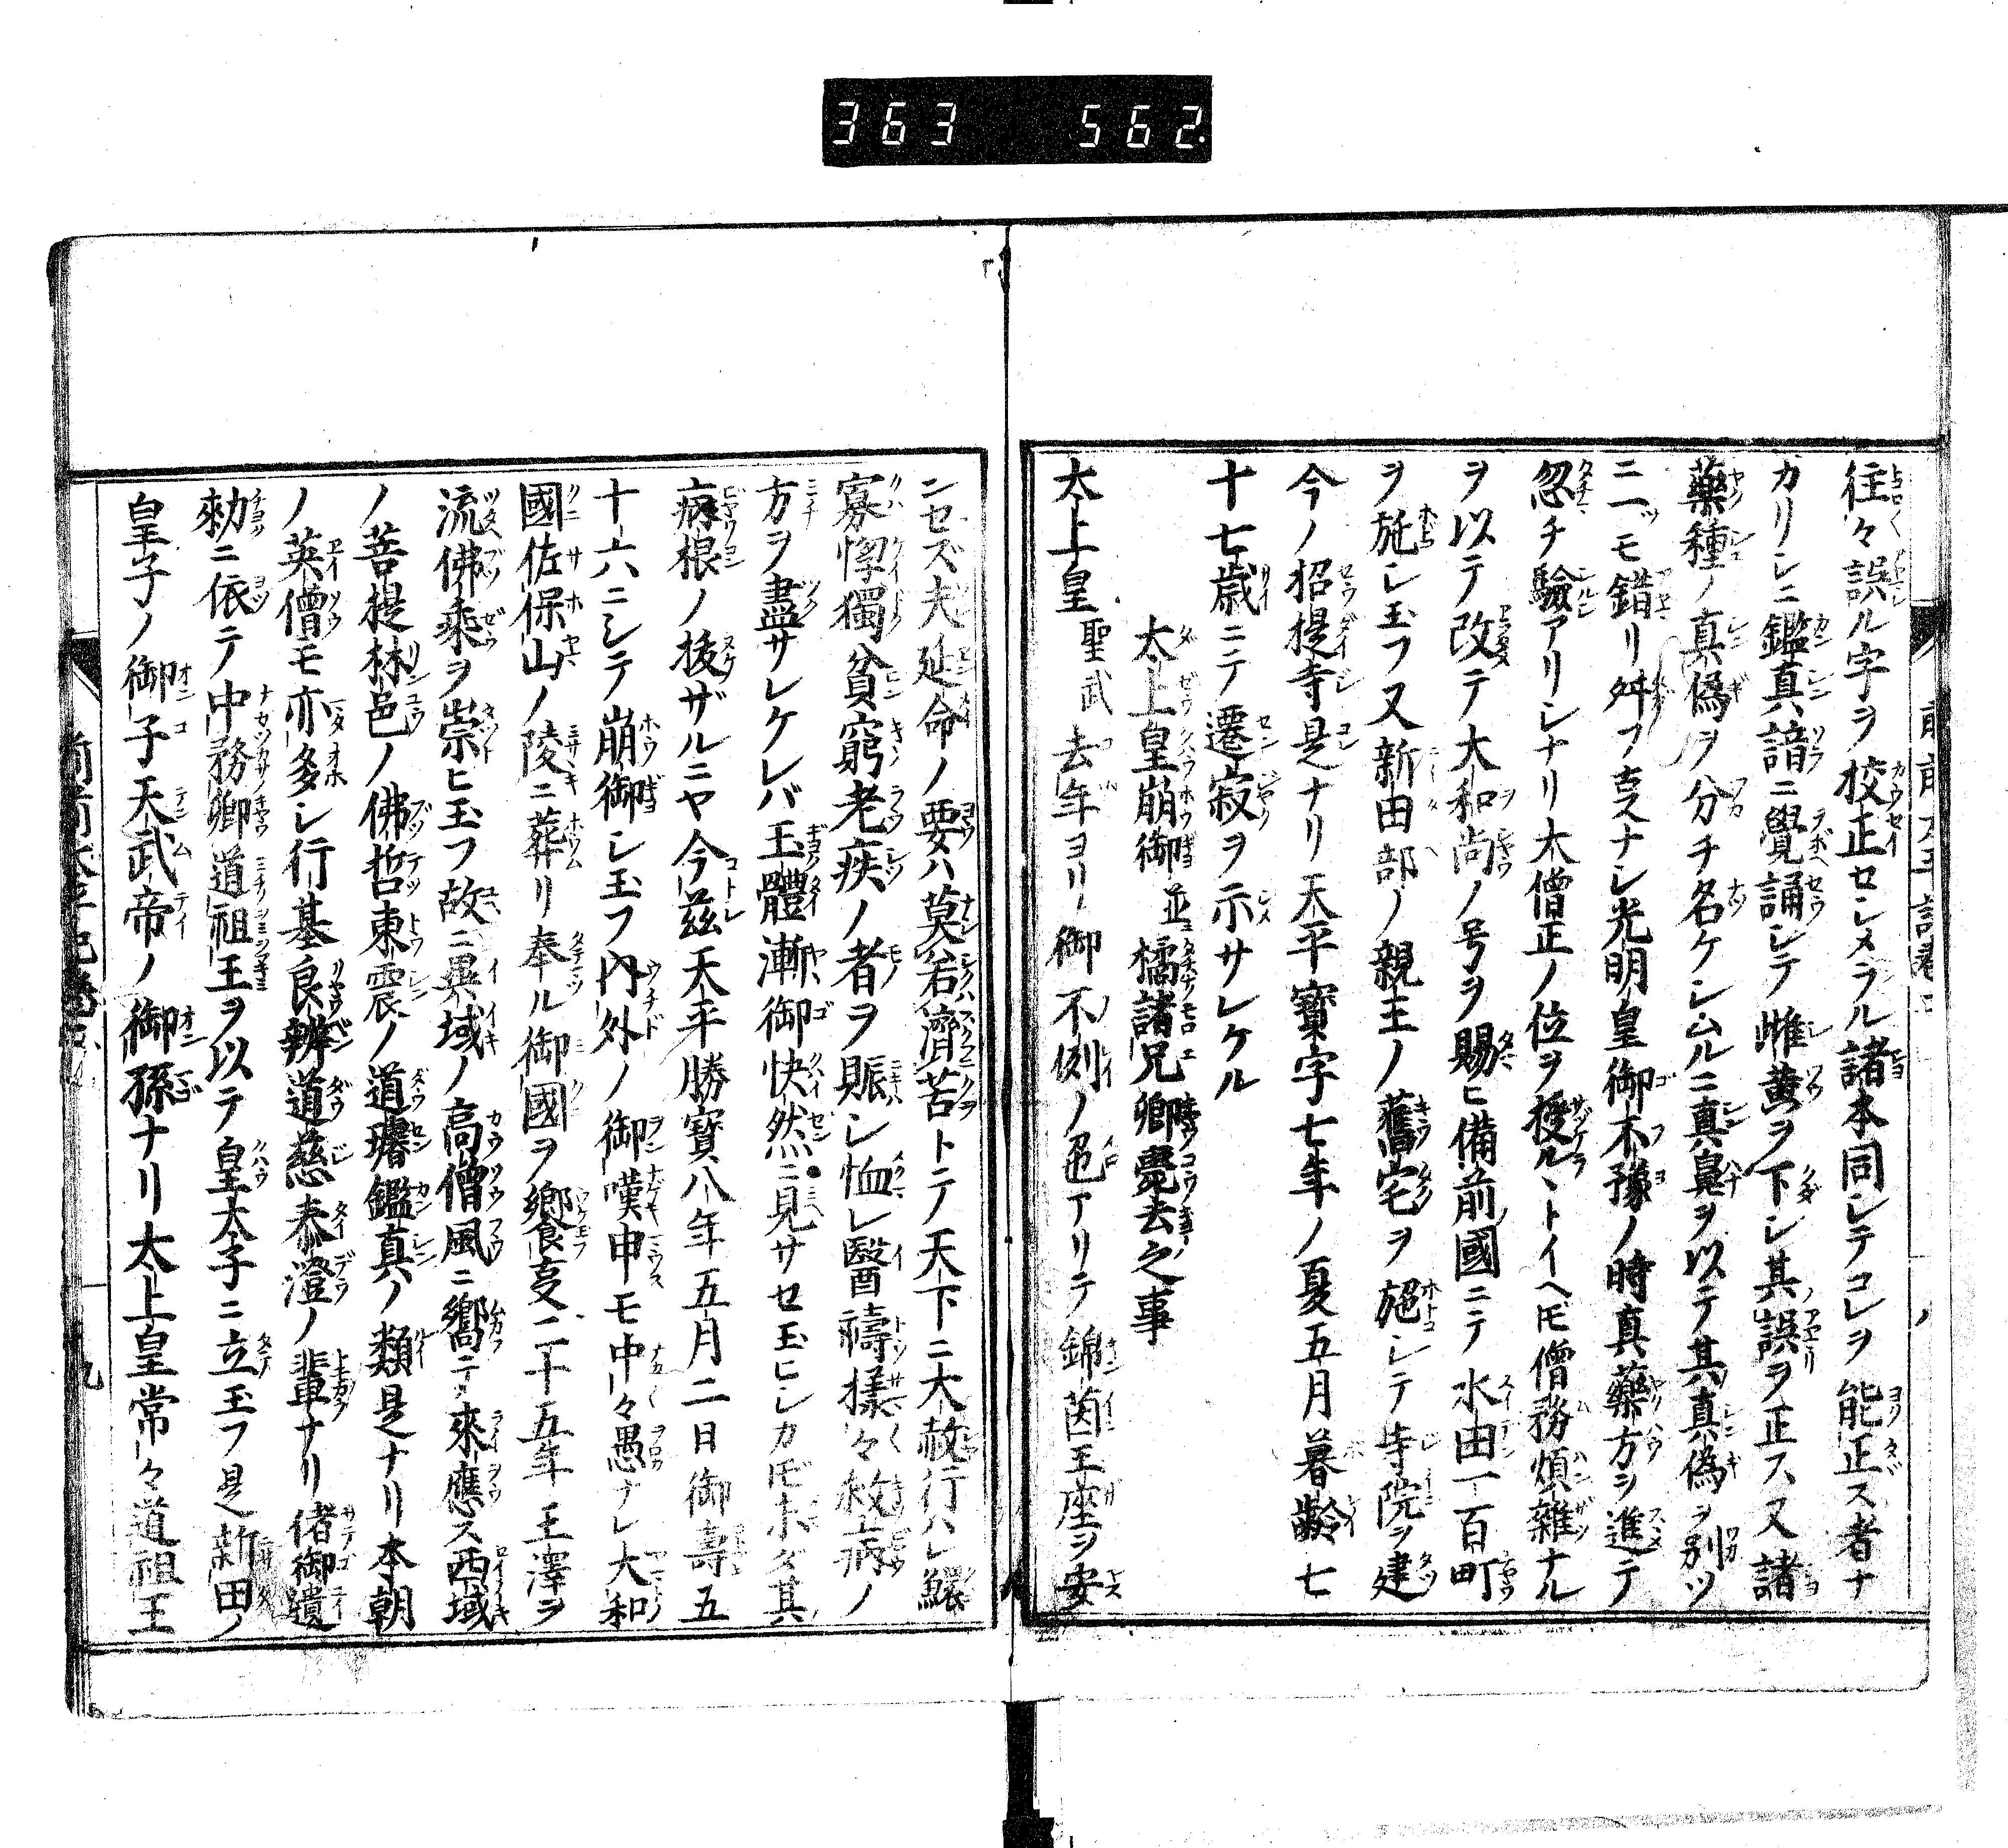 363 562
往々誤ル字ヲ校正セシメラル諸本同シテコレヲ能正ス者ナ
カリシニ鑑真諳ニ覺誦シテ雌黄ヲ下シ其誤ヲ正ス又諸
藥種ノ真偽ヲ分チ名ケシムルニ真鼻ヲ以テ其真偽ヲ別ツ
ニ一ツモ錯リ舛フ支ナシ光明皇御不豫ノ時真藥方ヲ進テ
忽チ驗アリシナリ大僧正ノ位ヲ授ルトイヘモ僧務煩雜ナル
ヲ以テ改テ大和尚ノ号ヲ賜ヒ備前國ニテ水田一百町
ヲ施シ玉フ又新田部ノ親王ノ舊宅ヲ施シテ寺院ヲ建
今ノ招提寺是ナリ天平寶字七年ノ夏五月暮齡七
十七歳ニテ遷寂ヲ示サレケル
太上皇崩御並橘諸兄卿薨去之事
太上皇聖武去年ヨリ御不例ノ色アリテ錦茵玉座ヲ安
ンセズ夫延命ノ要ハ莫若濟苦トニテ天下ニ大赦行ハレ鰥
寡惸獨貧窮老疾ノ者ヲ賑シ恤レ醫禱様々救病ノ
方ヲ盡サレケレバ玉體漸御快然ニ見サセ玉ヒシカモホダ其
病根ノ拔ザルニヤ今茲天平勝寶八年五月二日御壽五
十六ニシテ崩御シ玉フ内外ノ御嘆申モ中々愚ナレ大和
國佐保山ノ陵ニ葬リ奉ル御國ヲ饗受二十五年王澤ヲ
流佛乘ヲ崇ヒ玉フ故ニ異域ノ高僧風ニ嚮テ來應ス西域
ノ菩提林邑ノ佛哲東震ノ道璿鑑真ノ類是ナリ本朝
ノ英僧モ亦多シ行基良辨道慈泰澄ノ輩ナリ偖御遺
勅ニ依テ中務卿道祖王ヲ以テ皇太子ニ立玉フ是新田ノ
皇子ノ御子天武帝ノ御孫ナリ太上皇常々道祖王
九